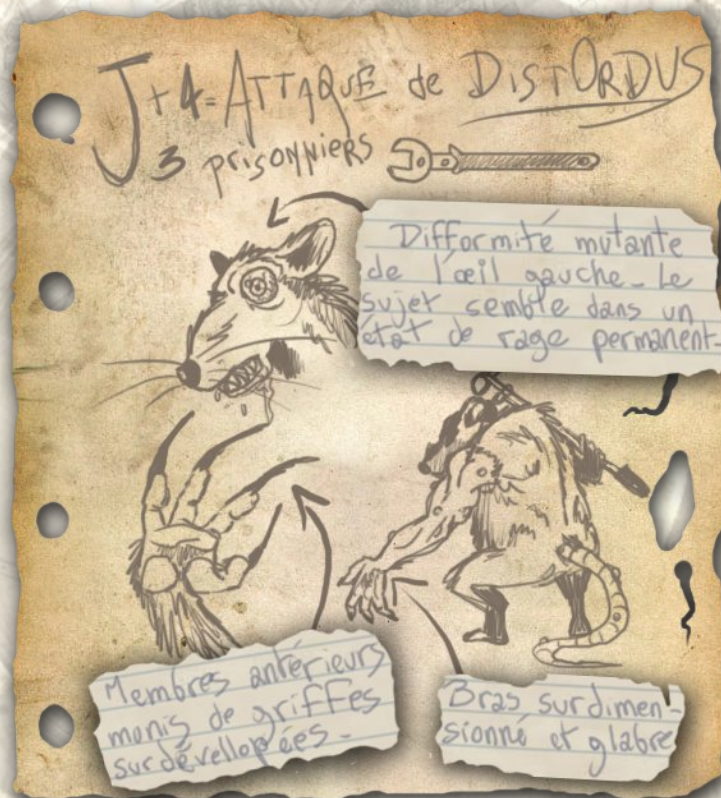 J+4=ATTAQUE de DISTORDUS
3 prisonniers
Difformité mutante
de l'œil gauche_ Le
sujet semble dans un
état de rage permanent_
Membres antérieurs
munis de griffes
surdévellopées_
Bras surdimen-
sionné et glabre